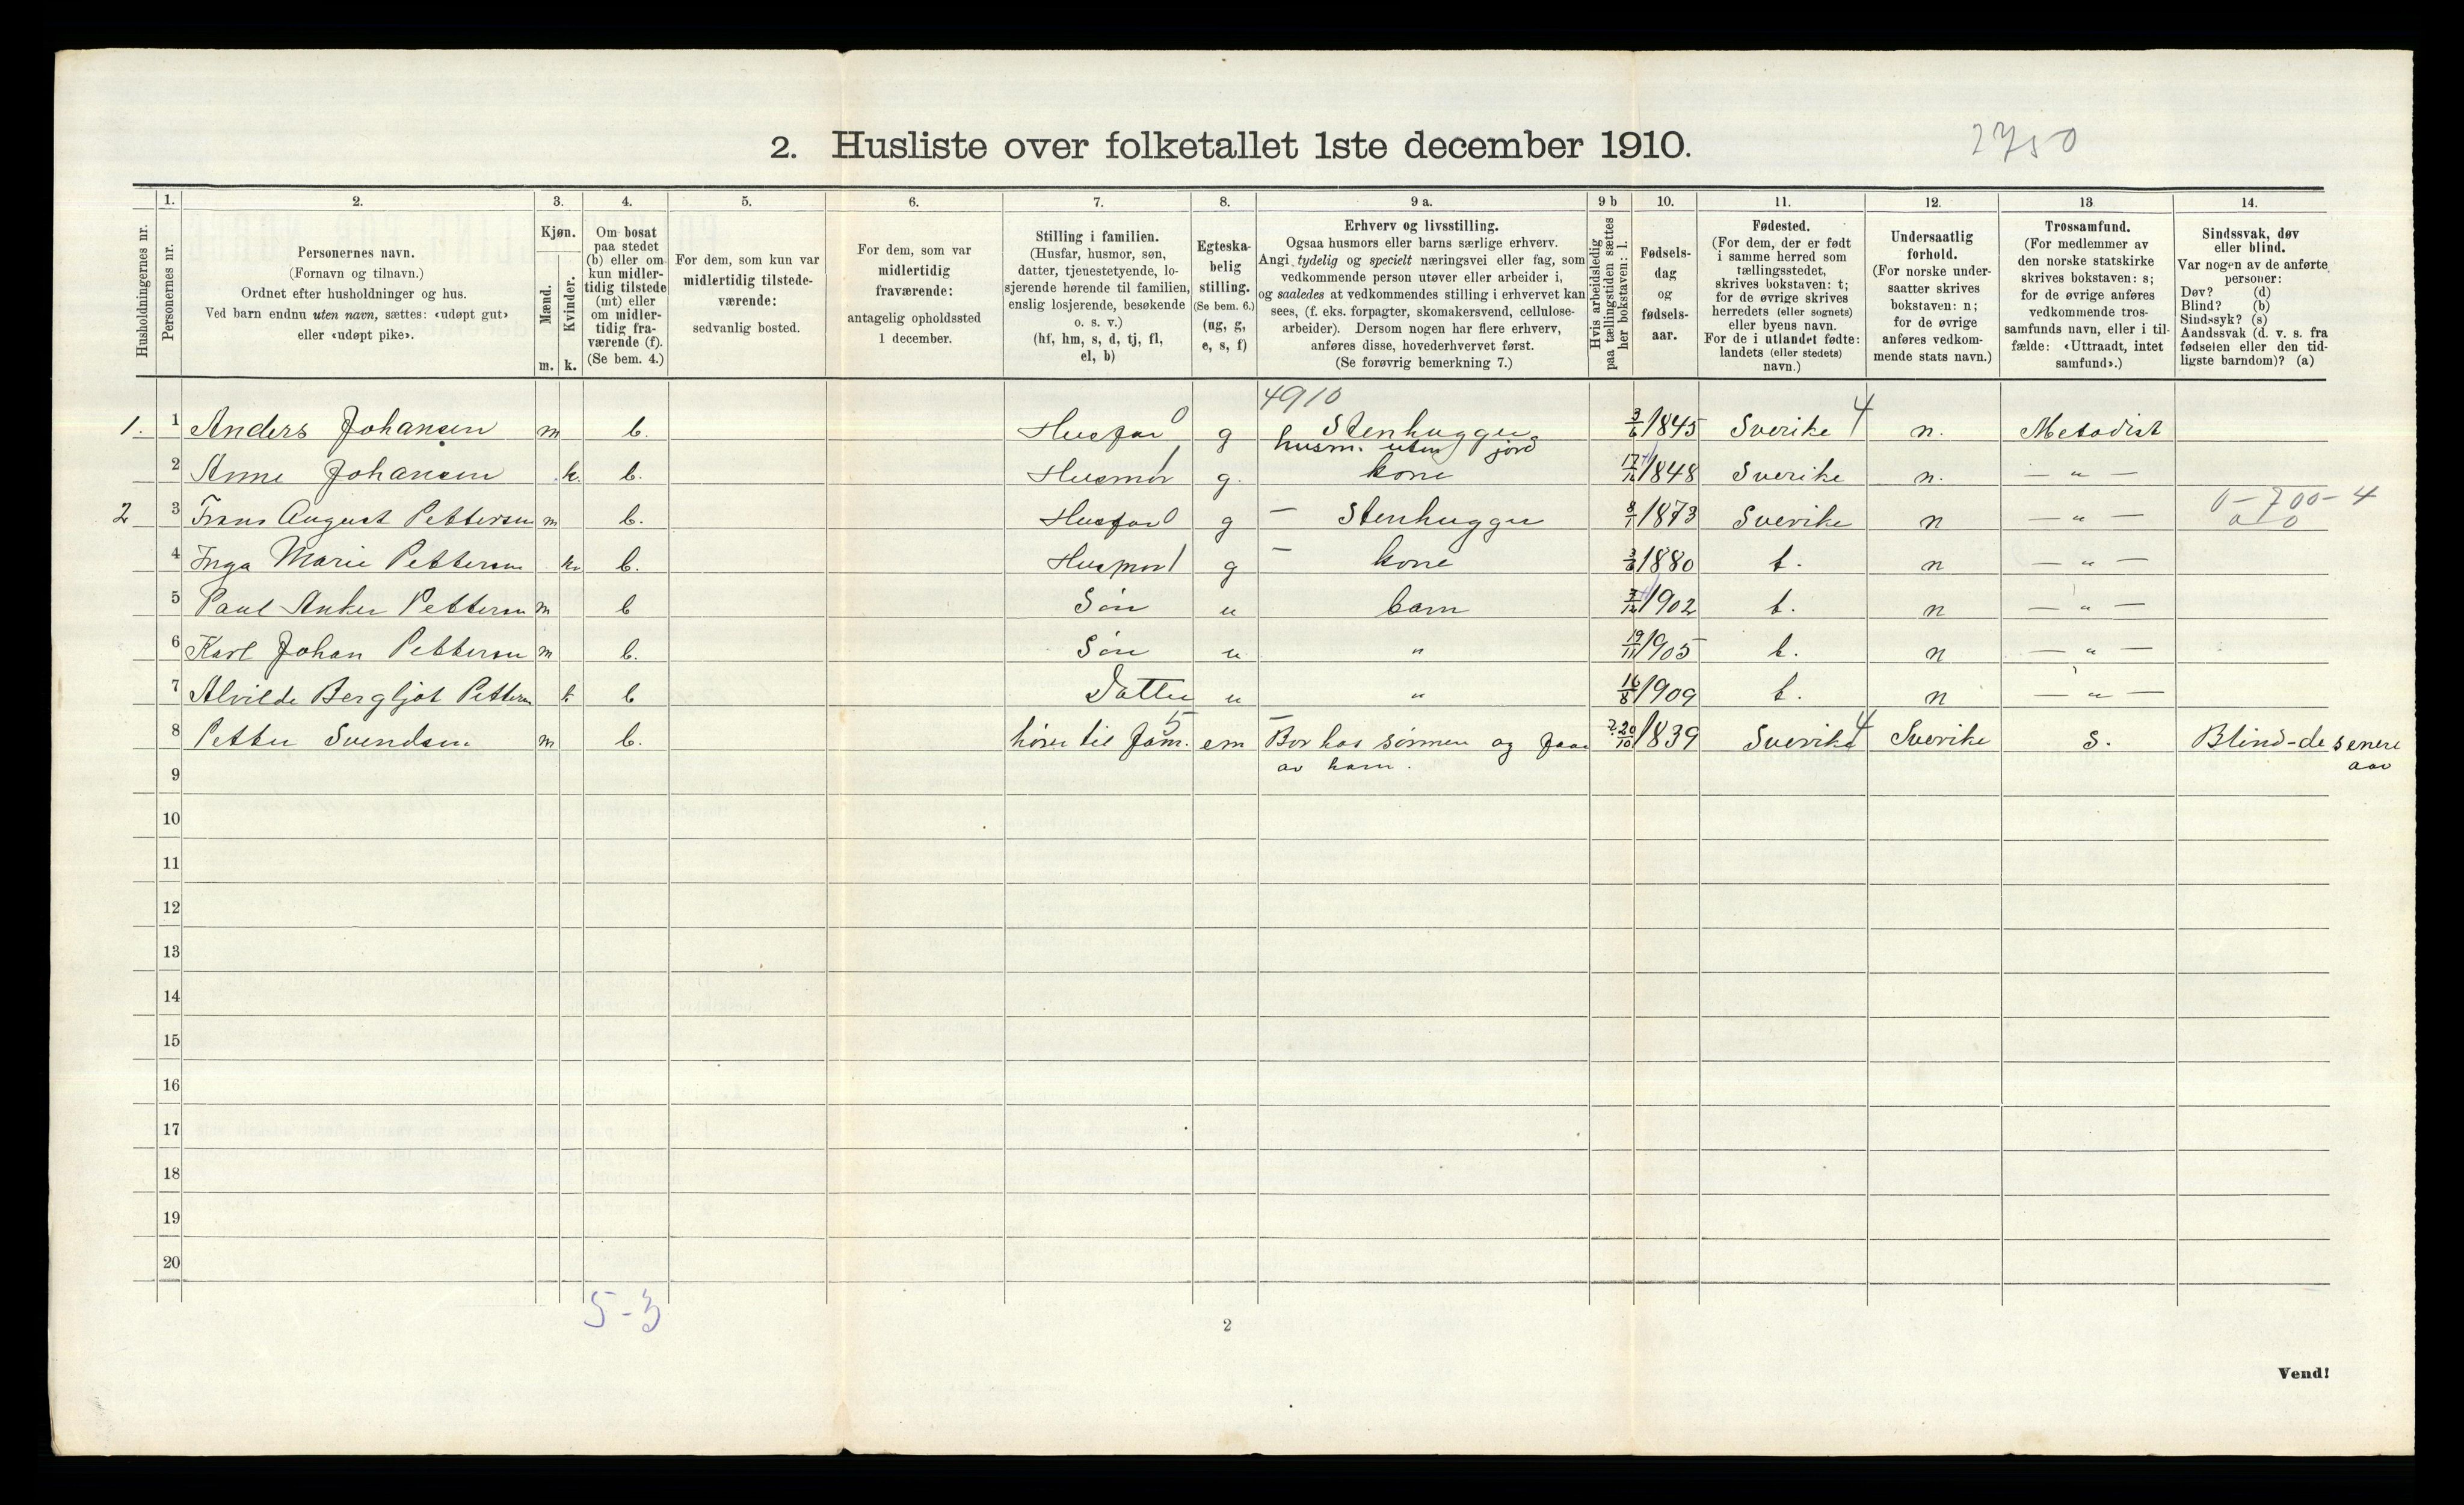 2. Husliste over folketallet 1ste december 1910.
2750
Husholdningernes nr.
1. Personernes nr.
2. Personernes navn.
(Fornavn og tilnavn.)
Ordnet efter husholdninger og hus.
Ved barn endnu uten navn, sættes: «udøpt gut»
eller «udøpt pike».
3. Kjøn.
Mænd. m.
Kvinder. k.
4. Om bosat
paa stedet
(b) eller om
kun midler-
tidig tilstede
(mt) eller
om midler-
tidig fra-
værende (f).
(Se bem. 4.)
5. For dem, som kun var
midlertidig tilstede-
værende:
sedvanlig bosted.
6. For dem, som var
midlertidig
fraværende:
antagelig opholdssted
1 december.
7. Stilling i familien.
(Husfar, husmor, søn,
datter, tjenestetyende, lo-
sjerende hørende til familien,
enslig losjerende, besøkende
o. s. v.)
(hf, hm, s, d, tj, fl,
el, b)
8. Egteska-
belig
stilling.
(Se bem. 6.)
(ug, g,
e, s, f)
9 a. Erhverv og livsstilling.
Ogsaa husmors eller barns særlige erhverv.
Angi tydelig og specielt næringsvei eller fag, som
vedkommende person utøver eller arbeider i,
og saaledes at vedkommendes stilling i erhvervet kan
sees, (f. eks. forpagter, skomakersvend, cellulose-
arbeider). Dersom nogen har flere erhverv,
anføres disse, hovederhvervet først.
(Se forøvrig bemerkning 7.)
9 b Hvis arbeidsledig
paa tællingstiden sættes
her bokstaven: l.
10. Fødsels-
dag
og
fødsels-
aar.
11. Fødested.
(For dem, der er født
i samme herred som
tællingsstedet,
skrives bokstaven: t;
for de øvrige skrives
herredets (eller sognets)
eller byens navn.
For de i utlandet fødte:
landets (eller stedets)
navn.)
12. Undersaatlig
forhold.
(For norske under-
saatter skrives
bokstaven: n;
for de øvrige
anføres vedkom-
mende stats navn.)
13 Trossamfund.
(For medlemmer av
den norske statskirke
skrives bokstaven: s;
for de øvrige anføres
vedkommende tros-
samfunds navn, eller i til-
fælde: «Uttraadt, intet
samfund».)
14. Sindssvak, døv
eller blind.
Var nogen av de anførte
personer:
Døv? (d)
Blind? (b)
Sindssyk? (s)
Aandssvak (d. v. s. fra
fødselen eller den tid-
ligste barndom)? (a)
4910
1. 1 Anders Johansen m b. Husfar 0 g Stenhugger 3/6 1845 Sverike 4 n. Metodist
husm. uten jord
2 Anne Johansen k. b. Husmor 1 g. kone 17/12 1848 Sverike n. — " —
0-700-4
2 3 Frans August Pettersen m b. Husfar 0 g — Stenhugger 8/1 1873 Sverike n — " —
4 Inga Marie Pettersen k. b. Husmor 1 g — kone 3/6 1880 t. n — " —
5 Paul Anker Pettersen m b Søn u barn 3/12 1902 t. n — " —
6 Karl Johan Pettersen m b. Søn u " 19/11 1905 t. n — " —
7 Alvilde Bergljot Pettersen k b Datter u " 16/8 1909 t. n — " —
8 Petter Svendsen m b. hører til fam. 5 em Bor hos sønnen og faar 20/10 1839 Sverike 4 Sverike s. Blind-de senere
av ham. aar
9
10
11
12
13
14
15
16
17
18
19
20
5-3
2
Vend!